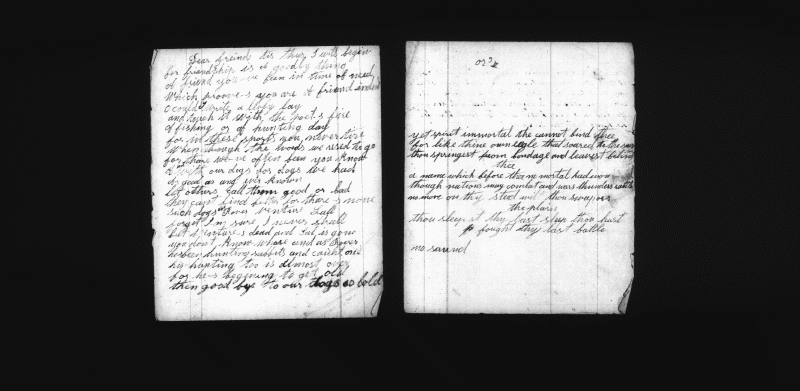 Dear freind tis thus I will begin
for friendship is a goodly thing
of friend you've been in time of need
Which prooves you are A friend indeed
Could I write a lofty lay
and touch it with the poet's fire
of fishing or of hunting day
for in these sports you never tire
When through the woods we used to go
for there we've often been you know
With our dogs for dogs we had
As good as and ever known
let others call them good or bad
they can't find better for there's none
such dogs as Rover Venture Tall
forget I'm sure I never shall
but Venture's dead and Tal is gone
you don't know where and as Rover
hunting rabbits and caught one
his hunting too is almost over
for he's begining to get old
then good bye to our dogs so bold
yet spirit immortal the cannot bind thee
for like thine own eagle that soared to the sun
thou springest from bondage and leavest behind
thee
a name which before thee no mortal had won
though nations may combat and wars thunders rattle
no more on thy steed wilt thou sweep oer
the plain
thou sleep'st thy last sleep thou hast
fought thy last battle
no sound